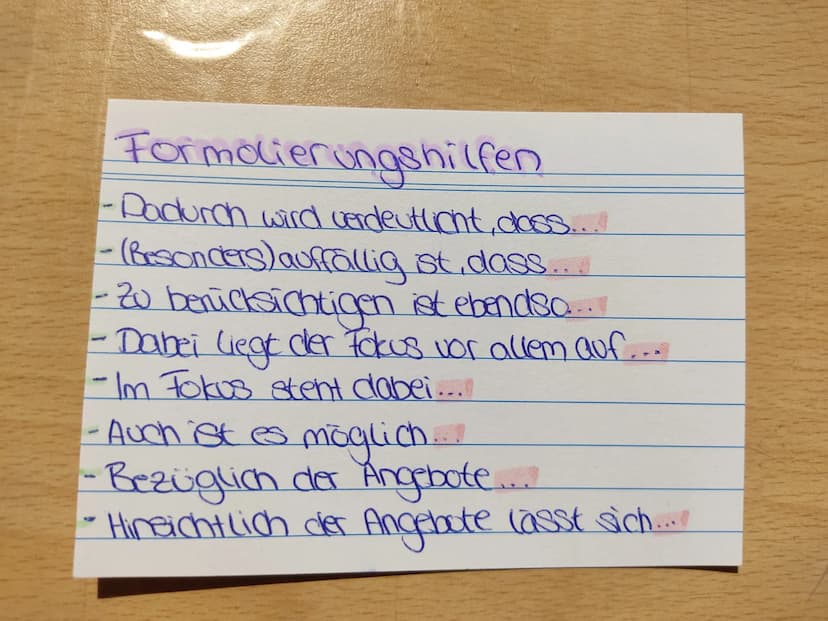 Formolierungshilfen
- Dadurch wird verdeutlicht, dass...
- (Besonders) auffällig ist, dass...
- Zu berücksichtigen ist ebendso...
- Dabei liegt der Fokus vor allem auf...
- Im Fokus steht dabei...
- Auch ist es möglich...
- Bezüglich der Angebote...
- Hinsichtlich der Angebote lässt sich...